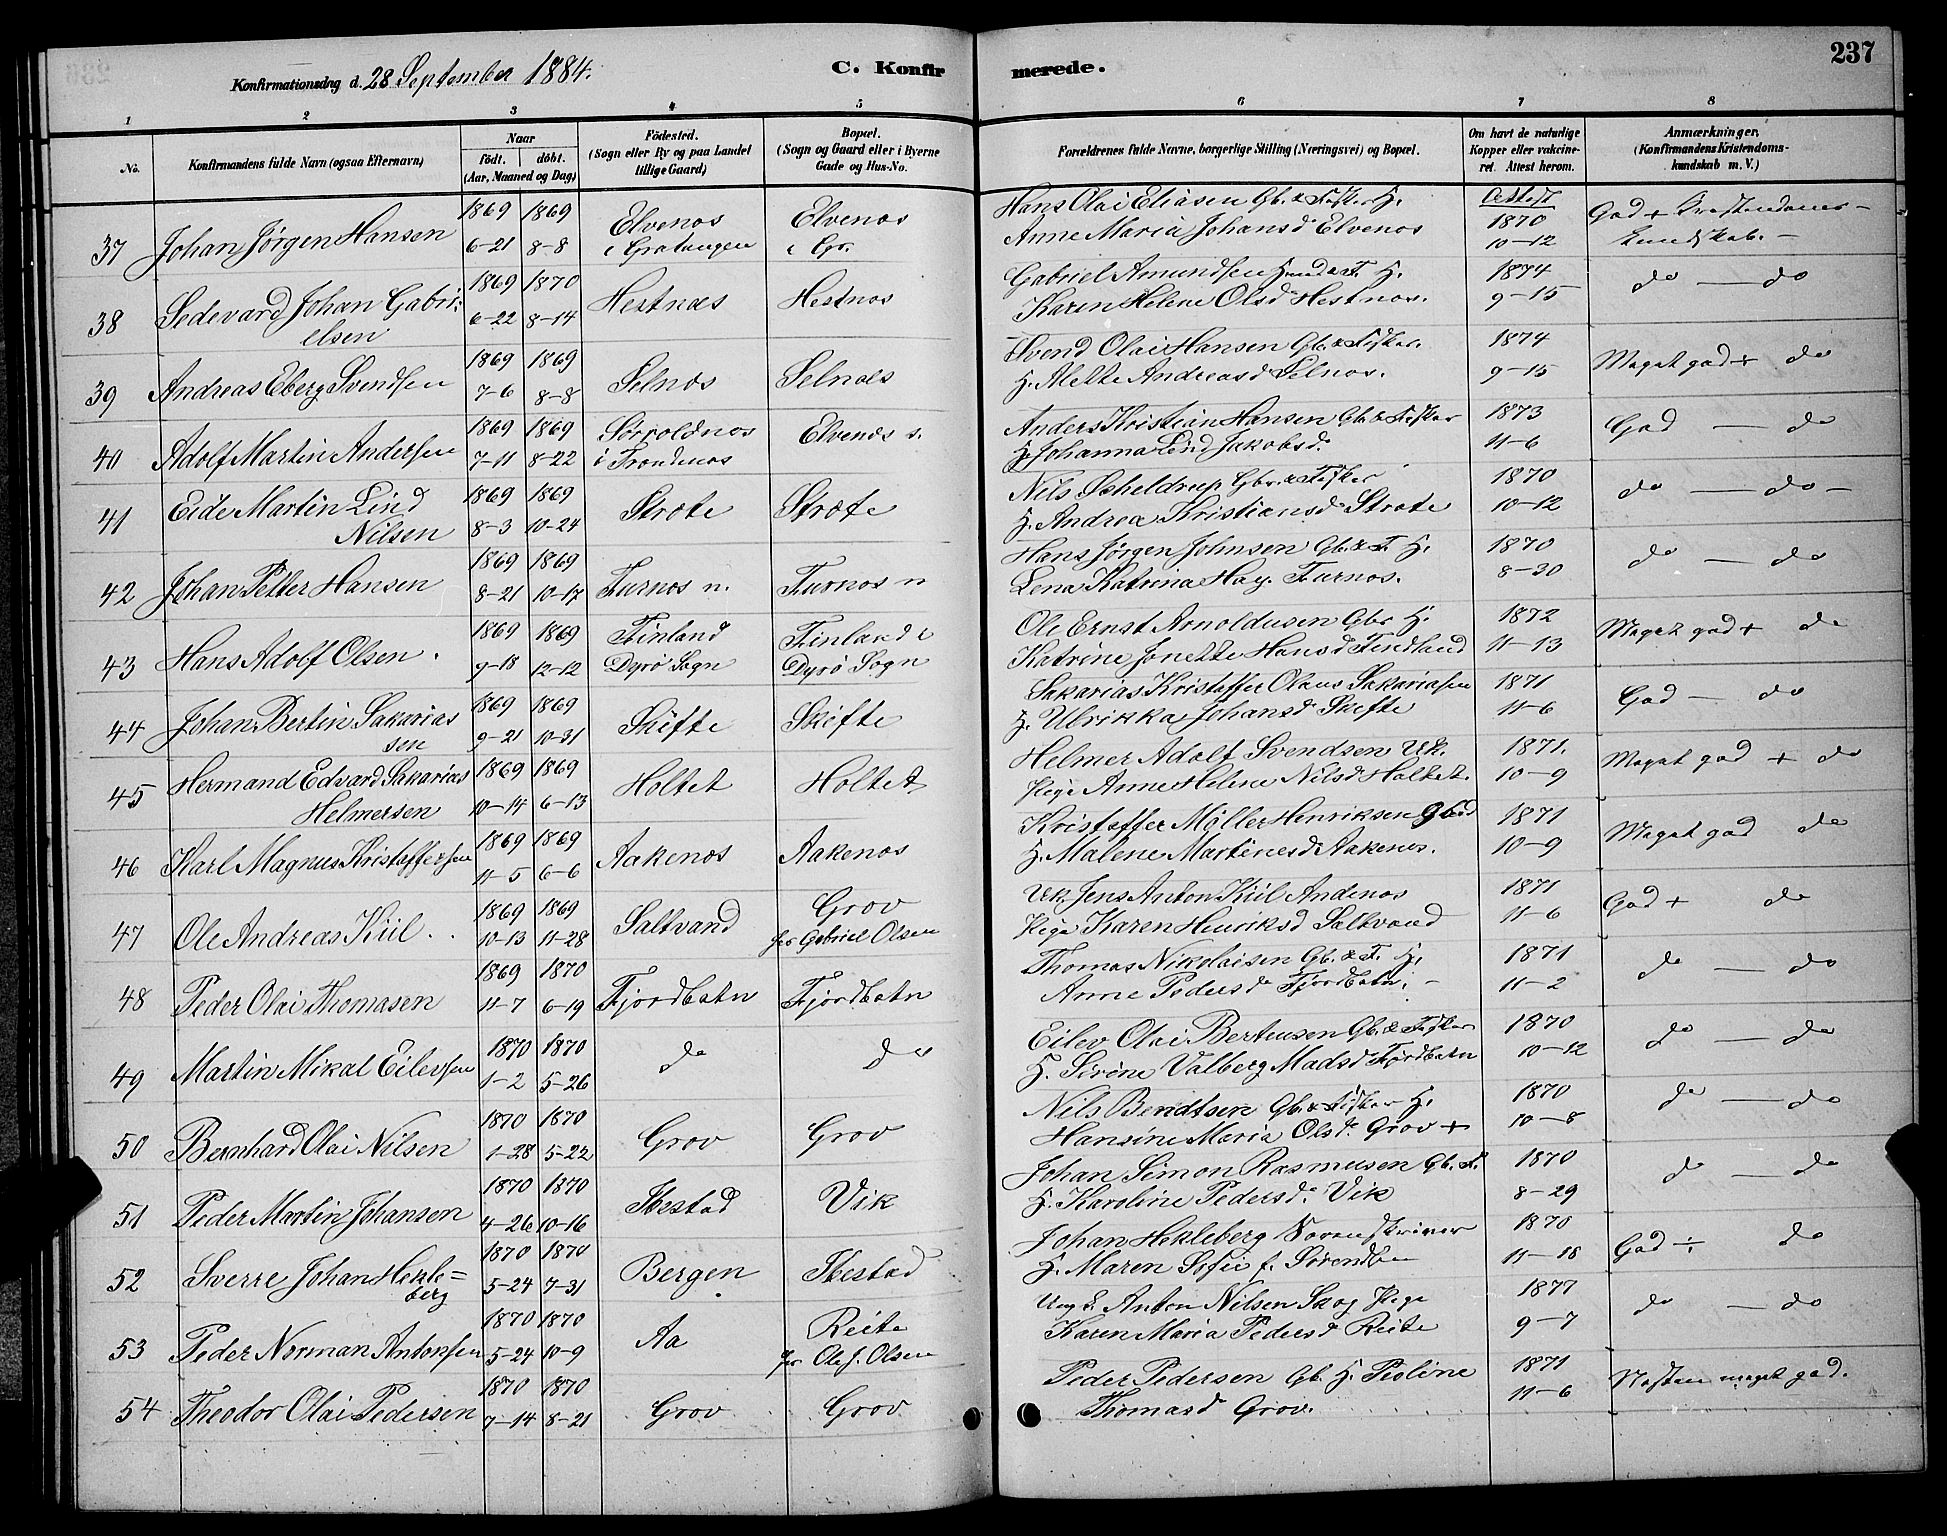 237
Konfirmationsdag d. 28 September 1884. C. Konfirmerede.
1 2 3 4 5 6 7 8
No. Konfirmandens fulde Navn (ogsaa Efternavn) Naar födt. döbt. (Aar, Maaned og Dag) Födested. (Sogn eller By og paa Landet tillige Gaard) Bopæl. (Sogn og Gaard eller i Byerne Gade og Hus-No. Forældrenes fulde Navne, borgerlige Stilling (Næringsvei) og Bopæl. Om havt de naturlige Kopper eller vakcineret. Attest herom. Anmærkninger. (Konfirmandens Kristendomskundskab m. V.)
1869 1869 Elvenos Elvenos Hans Olai Eliasen Gb. & Fisker H. Attest 1870 God + Kristendoms-
37 Johan Jørgen Hansen 6-21 8-8 i Gratangen i Gr. Anne Maria Johansd Elvenos 10-12 kundskab. -
1869 1870 Gabriel Amundsen H. 1874
38 Sedevard Johan Gabrielsen 6-22 8-14 Hestnæs Hestnos Karen Helene Olsd Hestnos. 9-15 do - do
1869 1869 Svend Olai Hansen Gb. & Fisker. 1874
39 Andreas Eberg Svendsen 7-6 8-8 Selnos Selnæs H. Mette Andreasd Selnos. 9-15 Meget god + do
1869 1869 Sørvoldnos Elvenos s. Anders Kristian Hansen Gb. & Fisker 1873 God - do
40 Adolf Martin Andersen 7-11 8-22 i Trondenos H. Johanna Lind Jakobsd. 11-6
1869 1869 Nils Scheldrup Gbr. & Fisker 1870
41 Eide Martin Lind Nilsen 8-3 10-24 Strote Stræte H. Andrea Kristiansd Strote 10-12 do - do -
1869 1869 Hans Jørgen Johnsen Gb. & F. H. 1870
42 Johan Petter Hansen 8-21 10-17 Furnos n. Furnos n Lena Katrina Hay. Furnos. 8-30 do - do
1869 1869 Finland Finland i Ole Ernst Arnoldusen Gbr. H. 1872 Meget god + do
43 Hans Adolf Olsen. 9-18 12-12 Dyrø Sogn Dyrø Sogn Katrine Jonette Hansd Findland 11-13
1869 1869 Sakarias Kristaffer Olaus Sakariasen 1871
44 Johan Bertin Sakariassen 9-21 10-31 Skifte Skifte H. Ulrikka Johansd Skefte 11-6 God - do
1869 1869 Helmer Adolf Svendsen Uk. 1871.
45 Hermand Edvard Sakarias Helmersen 10-14 6-13 Holtet Holtet Pige Anne Helene Nilsd Holtet. 10-9 Meget god + do
1869 1869 Kristaffer Møller Henriksen 1871
46 Karl Magnus Kristaffersen 11-5 6-6 Aakenos Aakenos H. Malene Martinesd Aakenos. 10-9 Meget god do
1869 1869 Grov Uk. Jens Anton Kiil Andenos 1871
47 Ole Andreas Kiil. 10-13 11-28 Saltvand for Gabriel Olsen Pige Karen Henriksd Saltvand 11-6 God + do
1869 1870 Thomas Nikolaisen Gb. & F. H. 1871
48 Peder Olai Thomasen 11-7 6-19 Fjordbotn Fjordbotn Anne Pedersd Fjordbotn. - 11-2 do - do
1870 1870 Eilev Olai Berteusen Gb. & Fisker 1870
49 Martin Mikal Eilevsen 1-2 5-26 do do H. Sirine Valberg Madsd Fjordbotn 10-12 do - do
1870 1870 Nils Bendtsen Gb. & Fisker H. 1870
50 Bernhard Olai Nilsen 1-28 5-22 Grov Grov Hansine Maria Olsd. Grov + 10-8 do - do
1870 1870 Johan Simon Rasmusen Gb. F. 1870
51 Peder Martin Johansen 4-26 10-16 Ibestad Vik H. Karoline Pedersd. Vik 8-29 do - do
1870 1870 Johan Hekleberg Sorenskriver 1870
52 Sverre Johan Hekleberg 5-24 7-31 Bergen Ibestad H. Maren Sofie f. 11-18 God ÷ do
1870 1870 Reite Ung. Anton Nilsen Skog Pige 1877
53 Peder Norman Antonsen 5-24 10-9 Aa for Ole J. Olsen Karen Maria Pedersd Reite 9-7 do - do
1870 1870 Peder Pedersen Gb. H. Peoline 1871
54 Theodor Olai Pedersen 7-14 8-21 Grov Grov Thomasd Grov. 11-6 Næsten meget god.